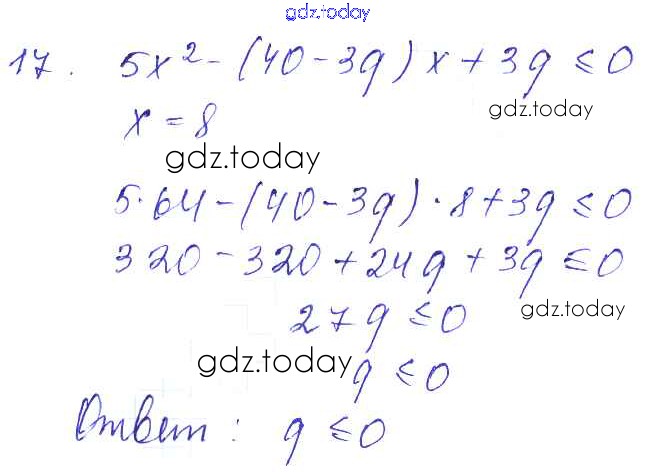 gdz.today
17. 5x² - (40 - 3q)x + 3q ≤ 0
gdz.today
x = 8
gdz.today
5·64 - (40 - 3q)·8 + 3q ≤ 0
320 - 320 + 24q + 3q ≤ 0
27q ≤ 0
gdz.today
gdz.today
q ≤ 0
Ответ: q ≤ 0